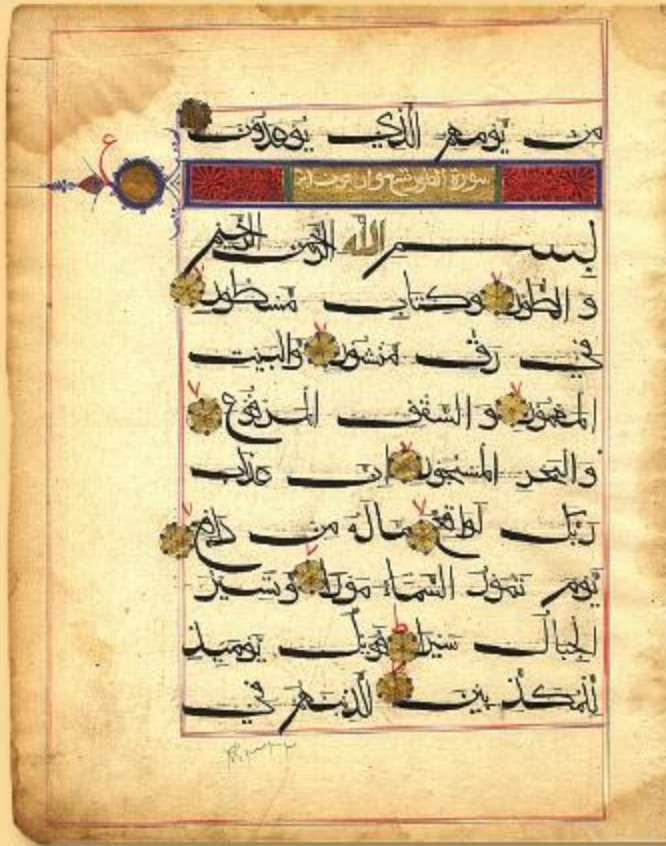 من يومهم الذي يوعدون
سورة الطور تسع واربعون اية
بسم الله الرحمن الرحيم
والطور وكتاب مسطور
في رق منشور والبيت
المعمور والسقف المرفوع
والبحر المسجور ان عذاب
ربك لواقع ماله من دافع
يوم تمور السماء مورا وتسير
الجبال سيرا فويل يوميذ
للمكذبين الذين هم في